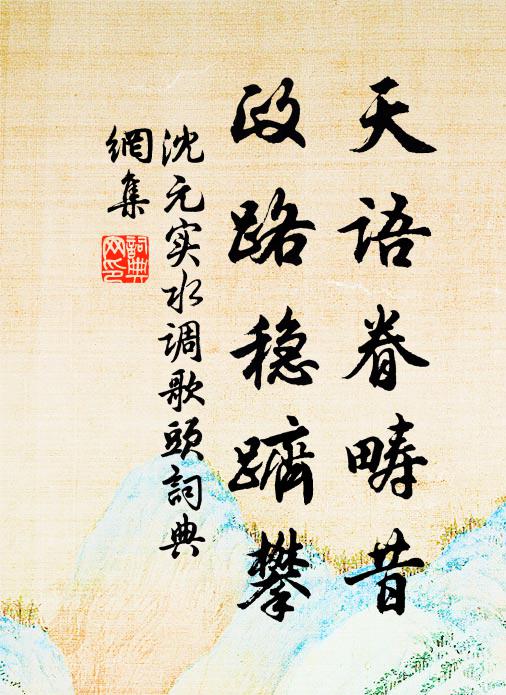 天语眷畴昔
政路稳跻攀
沈元实水调歌头词典
網集
詞典
网印